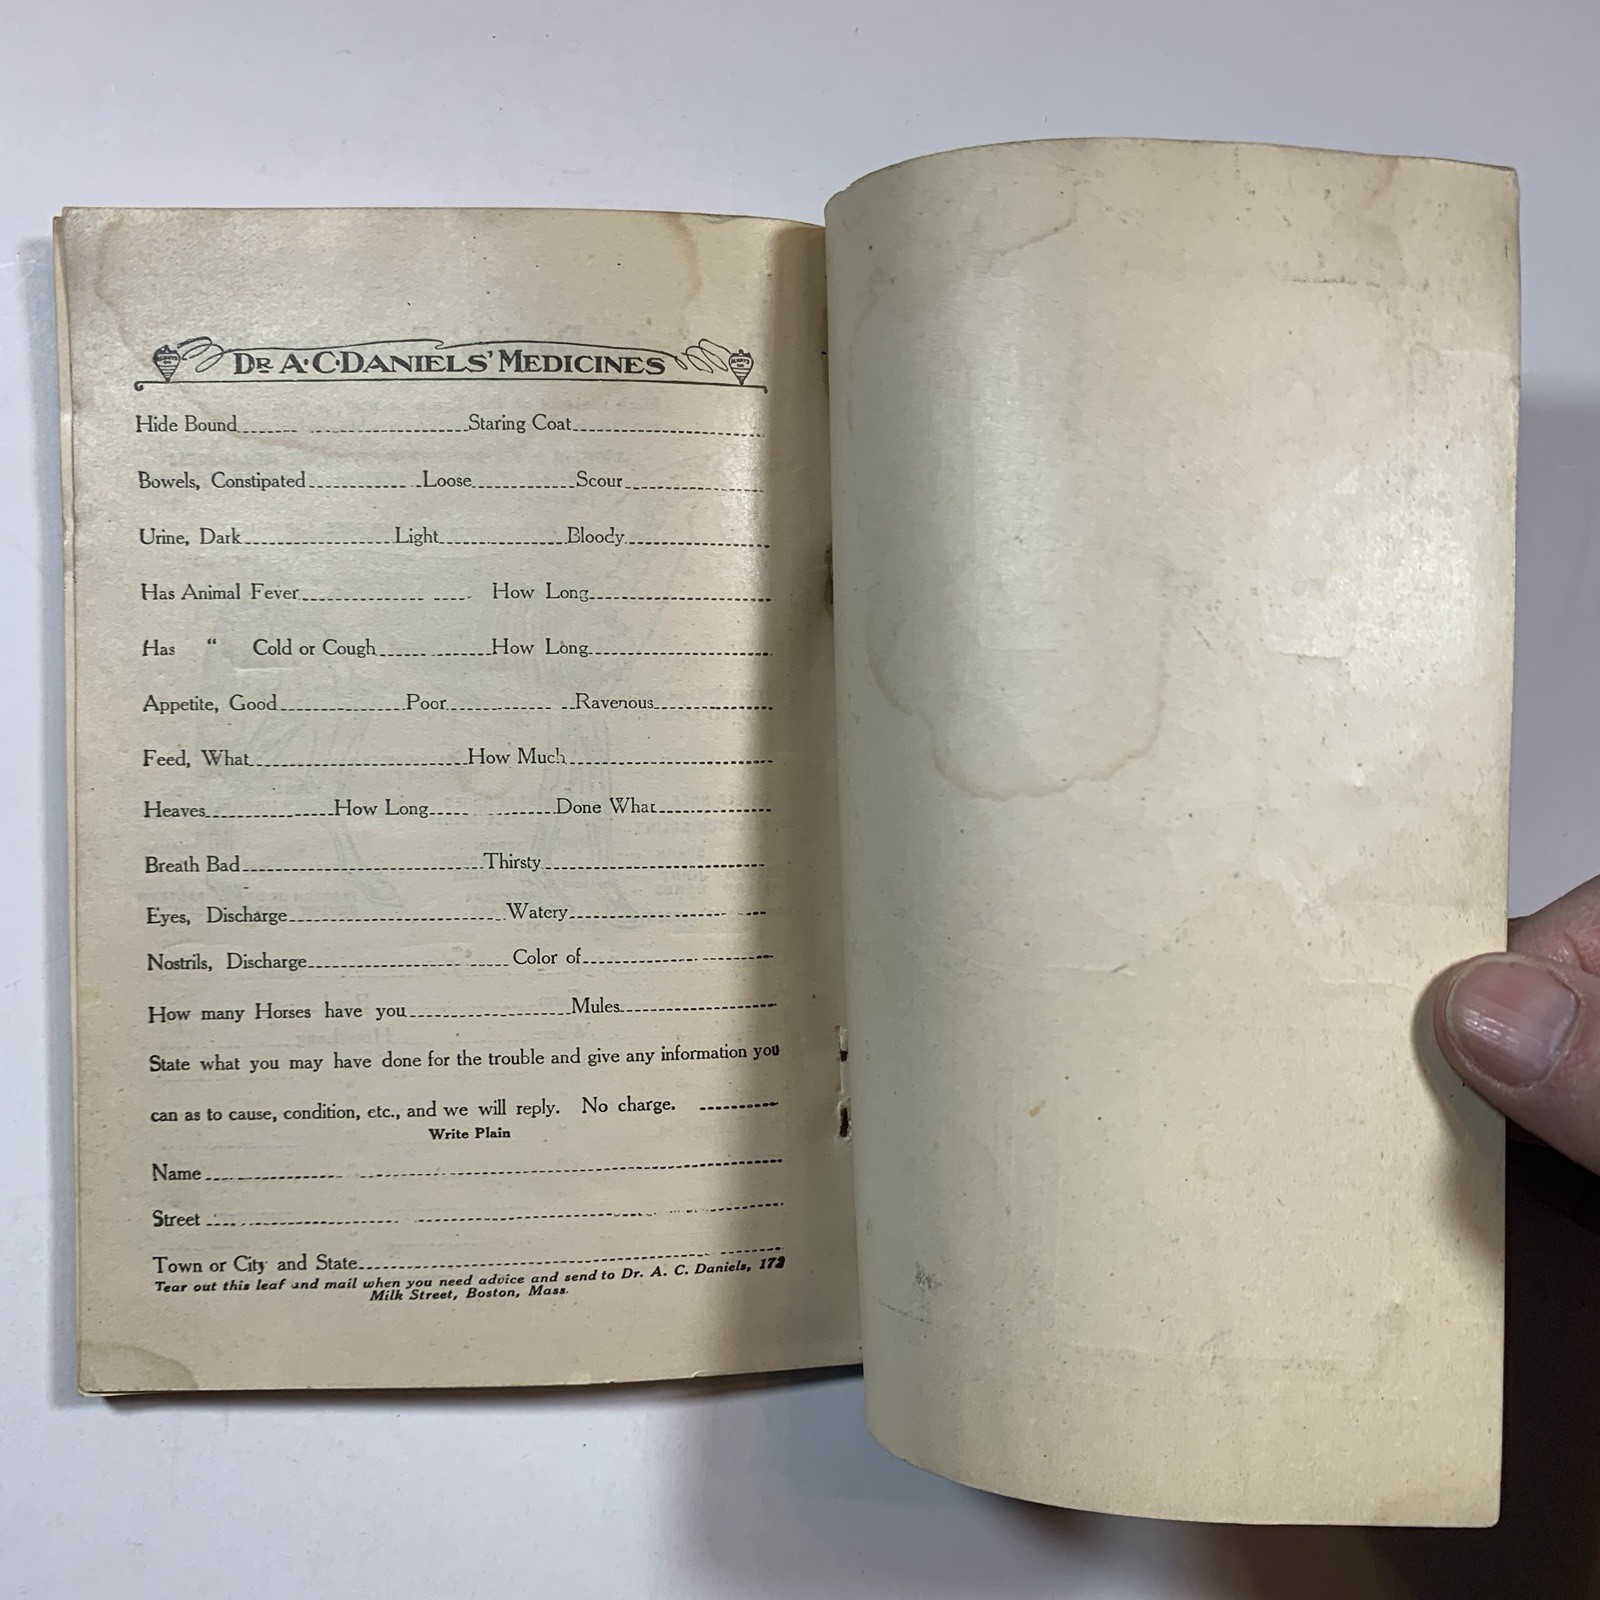 ALWAYS ON
DR A·C·DANIELS' MEDICINES
ALWAYS ON
Hide Bound Staring Coat
Bowels, Constipated Loose Scour
Urine, Dark Light Bloody
Has Animal Fever How Long
Has " Cold or Cough How Long
Appetite, Good Poor Ravenous
Feed, What How Much
Heaves How Long Done What
Breath Bad Thirsty
Eyes, Discharge Watery
Nostrils, Discharge Color of
How many Horses have you Mules
State what you may have done for the trouble and give any information you
can as to cause, condition, etc., and we will reply. No charge.
Write Plain
Name
Street
Town or City and State
Tear out this leaf and mail when you need advice and send to Dr. A. C. Daniels, 172
Milk Street, Boston, Mass.